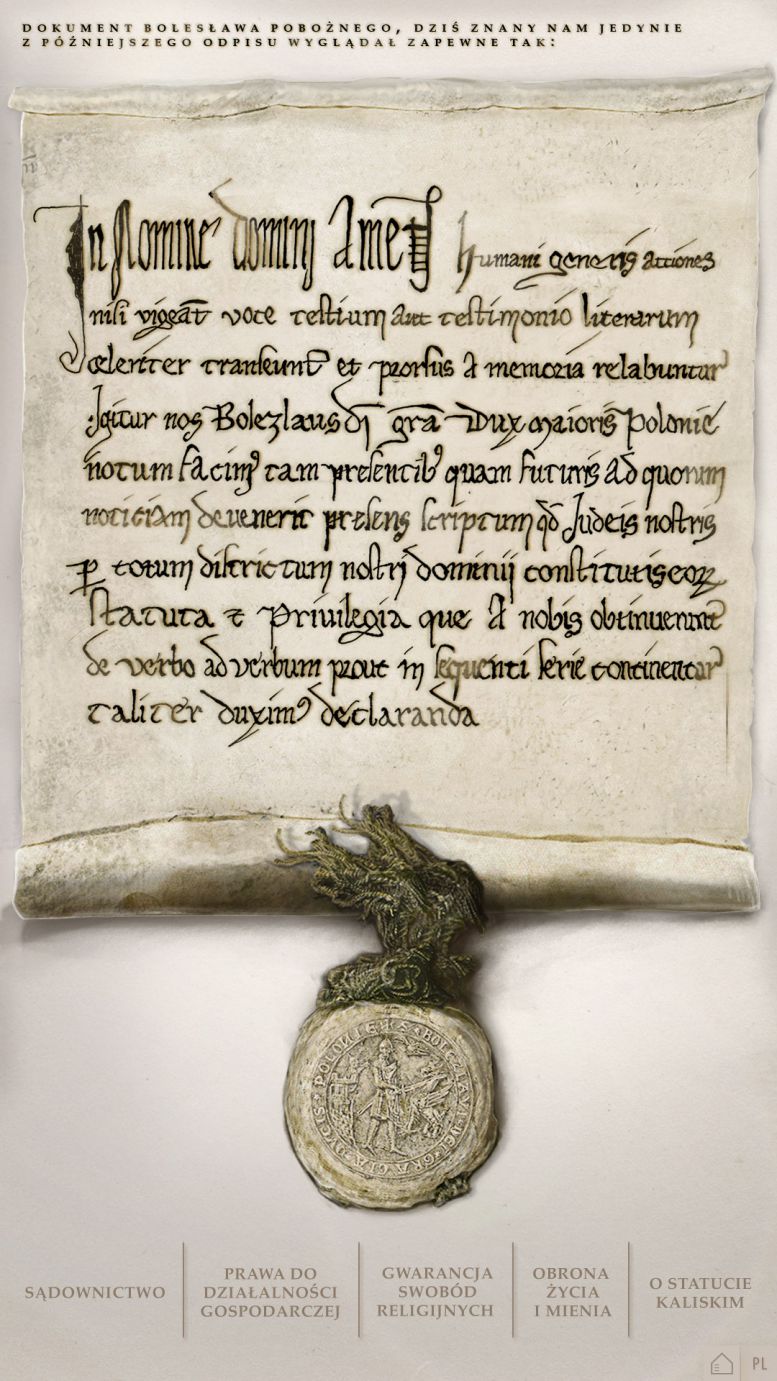 DOKUMENT BOLESŁAWA POBOŻNEGO, DZIŚ ZNANY NAM JEDYNIE
Z PÓŹNIEJSZEGO ODPISU WYGLĄDAŁ ZAPEWNE TAK:
In Nomine domini Amen humani generis acciones
nisi vigeat voce testium aut testimonio literarum
celeriter transeunt et prorsus A memoria relabuntur
Igitur nos Bolezlaus di gra Dux maioris Polonie
notum facim9 tam presentib9 quam futuris Ad quorum
noticiam devenerit presens scriptum qd Judeis nostris
p totum districtum nostri dominii constitutis eoꝝ
statuta et Privilegia que A nobis obtinuerunt
de verbo ad verbum prout in sequenti serie continentur
taliter duxim9 declaranda
POLONIENS BOLEZLAVI DEI GRACIA DVCIS
SĄDOWNICTWO
PRAWA DO
DZIAŁALNOŚCI
GOSPODARCZEJ
GWARANCJA
SWOBÓD
RELIGIJNYCH
OBRONA
ŻYCIA
I MIENIA
O STATUCIE
KALISKIM
PL